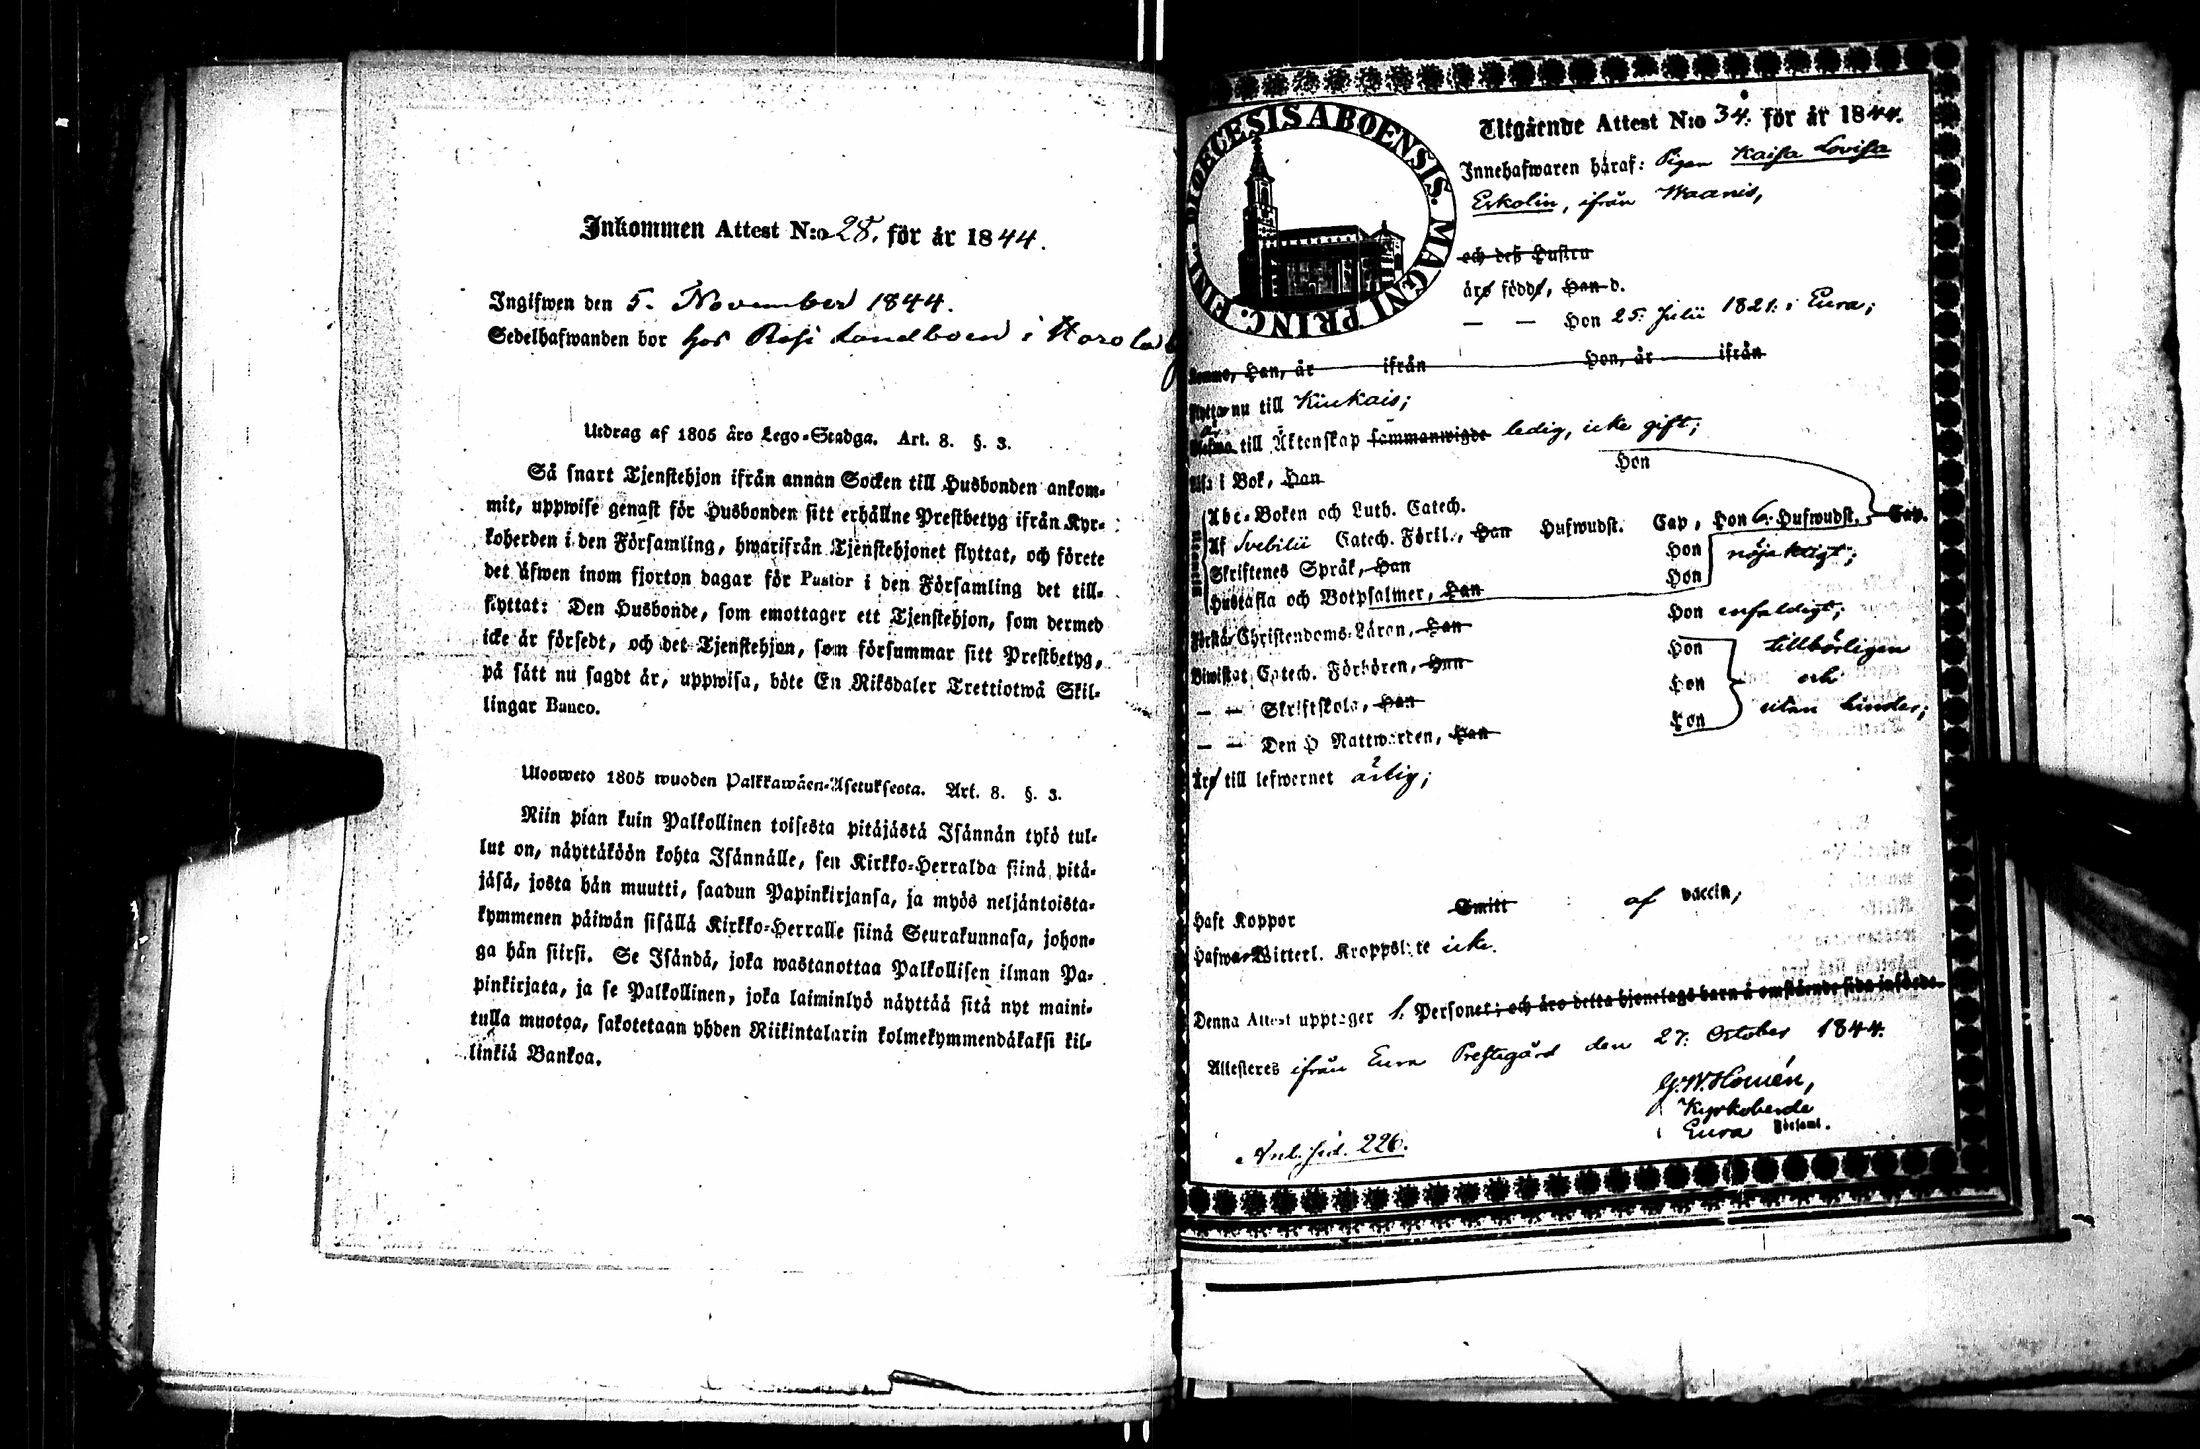 Inkommen Attest N:o 28. för år 1844.
Ingifwen den 5. November 1844.
Sedelhafwanden bor hos Landboen i
Utdrag af 1805 års Lego-Stadga. Art. 8. §. 3.
Så snart Tjenstehjon ifrån annan Socken till Husbonden ankom-
mit, uppwise genast för Husbonden sitt erhållne Prestbetyg ifrån Kyr-
koherden i den Församling, hwarifrån Tjenstehjonet flyttat, och förete
det äfwen inom fjorton dagar för Pastor i den Församling det till-
flyttat: Den Husbonde, som emottager ett Tjenstehjon, som dermed
icke är försedt, och det Tjenstehjon, som försummar sitt Prestbetyg,
på sätt nu sagdt är, uppwisa, böte En Riksdaler Trettiotwå Skil-
lingar Banco.
Ulosweto 1805 wuoden Palkkawäen-Asetuksesta. Art. 8. §. 3.
Niin pian kuin Palkollinen toisesta pitäjästä Isännän tykö tul-
lut on, näyttäköön kohta Isännälle, sen Kirkko-Herralda siinä pitä-
jäsä, josta hän muutti, saadun Papinkirjansa, ja myös neljäntoista-
kymmenen päiwän sisällä Kirkko-Herralle siinä Seurakunnasa, johon-
ga hän siirsi. Se Isändä, joka wastanottaa Palkollisen ilman Pa-
pinkirjata, ja se Palkollinen, joka laiminlyö näyttää sitä nyt maini-
tulla muotoa, sakotetaan yhden Riikintalarin kolmekymmendäkaksi kil-
linkiä Bankoa.
DIOECESIS ABOENSIS. MAGNI PRINC. FINL.
Utgående Attest N:o 34. för år 1844.
Innehafwaren häraf: Pigan Kaisa Lovisa
Eskolin, ifrån Waanis,
och deß Hustru
äro födde, Han d.
— — Hon 25. Julii 1821. i Eura;
Komne, Han, år ifrån Hon, år ifrån
Flyttar nu till Kiukais;
till Äktenskap sammanwigde ledig, icke gift;
Läsa i Bok, Han Hon
Abc-Boken och Luth. Catech.
Af Svebilii Catech. Förkl., Han Hufwudst. Cap, Hon 6. Hufwudst. Cap.
Skriftenes Språk, Han Hon nöjaktigt;
Hustafla och Botpsalmer, Han Hon
Förstå Christendoms-Läran, Han Hon enfaldigt;
Biwistat Catech. Förhören, Han Hon tillbörligen
— — Skriftskola, Han Hon och
— — Den H Nattwarden, Han Hon utan hinder;
Äro till lefwernet ärlig;
Haft Koppor Smitt af vaccin,
Hafwa Witterl. Kroppslyte icke.
Denna Attest upptager 1. Personer; och äro detta hjonelags barn å omstående sida införde.
Attesteres ifrån Eura Prestegård den 27. October 1844.
G. W. Homén,
Kyrkoherde
Eura Församl.
sid. 226.